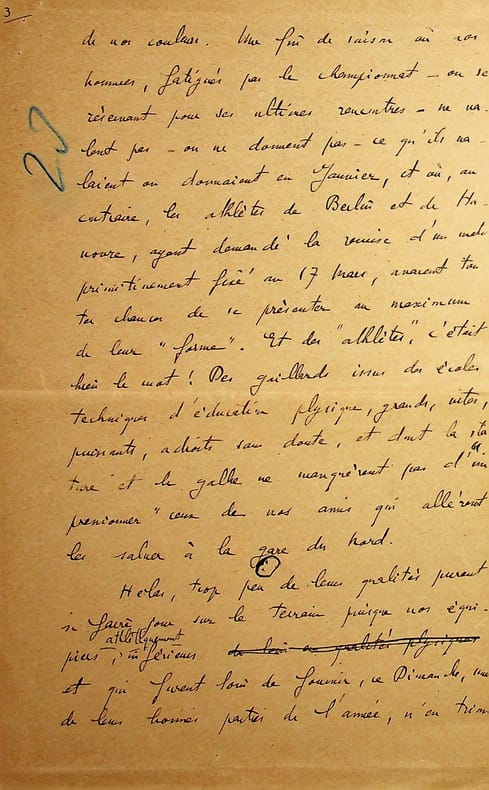 3
de nos couleurs. Une fin de saison où nos
hommes, fatigués par le championnat – ou se
réservant pour ses ultimes rencontres – ne va-
laient pas – ou ne donnent pas – ce qu'ils va-
laient ou donnaient en Janvier, et où, au
contraire, les athlètes de Berlin et de Ha-
novre, ayant demandé la remise d'un match
primitivement fixé au 17 Mars, avaient tou
tes chances de se présenter au maximum
de leur "forme". Et des "athlètes", c'était
bien le mot ! Des gaillards issus des écoles
techniques d'éducation physique, grands, vites,
puissants, adroits sans doute, et dont la sta
ture et le galbe ne manquèrent pas d'"im
pressionner" ceux de nos amis qui allèrent
les saluer à la gare du Nord.
Hélas, trop peu de leurs qualités purent
se faire jour sur le terrain puisque nos équi-
athlétiquement
piers, inférieurs qualités physiques
et qui furent loin de fournir, ce Dimanche, une
de leurs bonnes parties de l'année, n'en triom